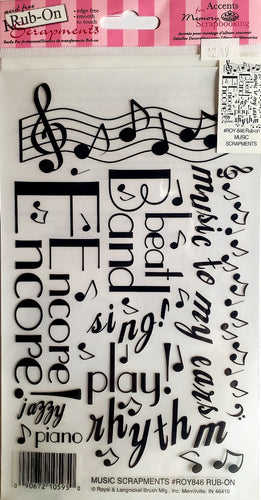 acid free
Rub-On
Scrapments
• edge free
• smooth
to touch
for Accents
Memory
Scrapbooking
#ROY 846 Rub-on
MUSIC
SCRAPMENTS
music to my ears
beat!
Band
Encore!
Encore
sing!
play!
jazzy
piano
rhythm
0 90672 10595 0
MUSIC SCRAPMENTS #ROY846 RUB-ON
© Royal & Langnickel Brush Mfg., Inc. Merrillville, IN 46410